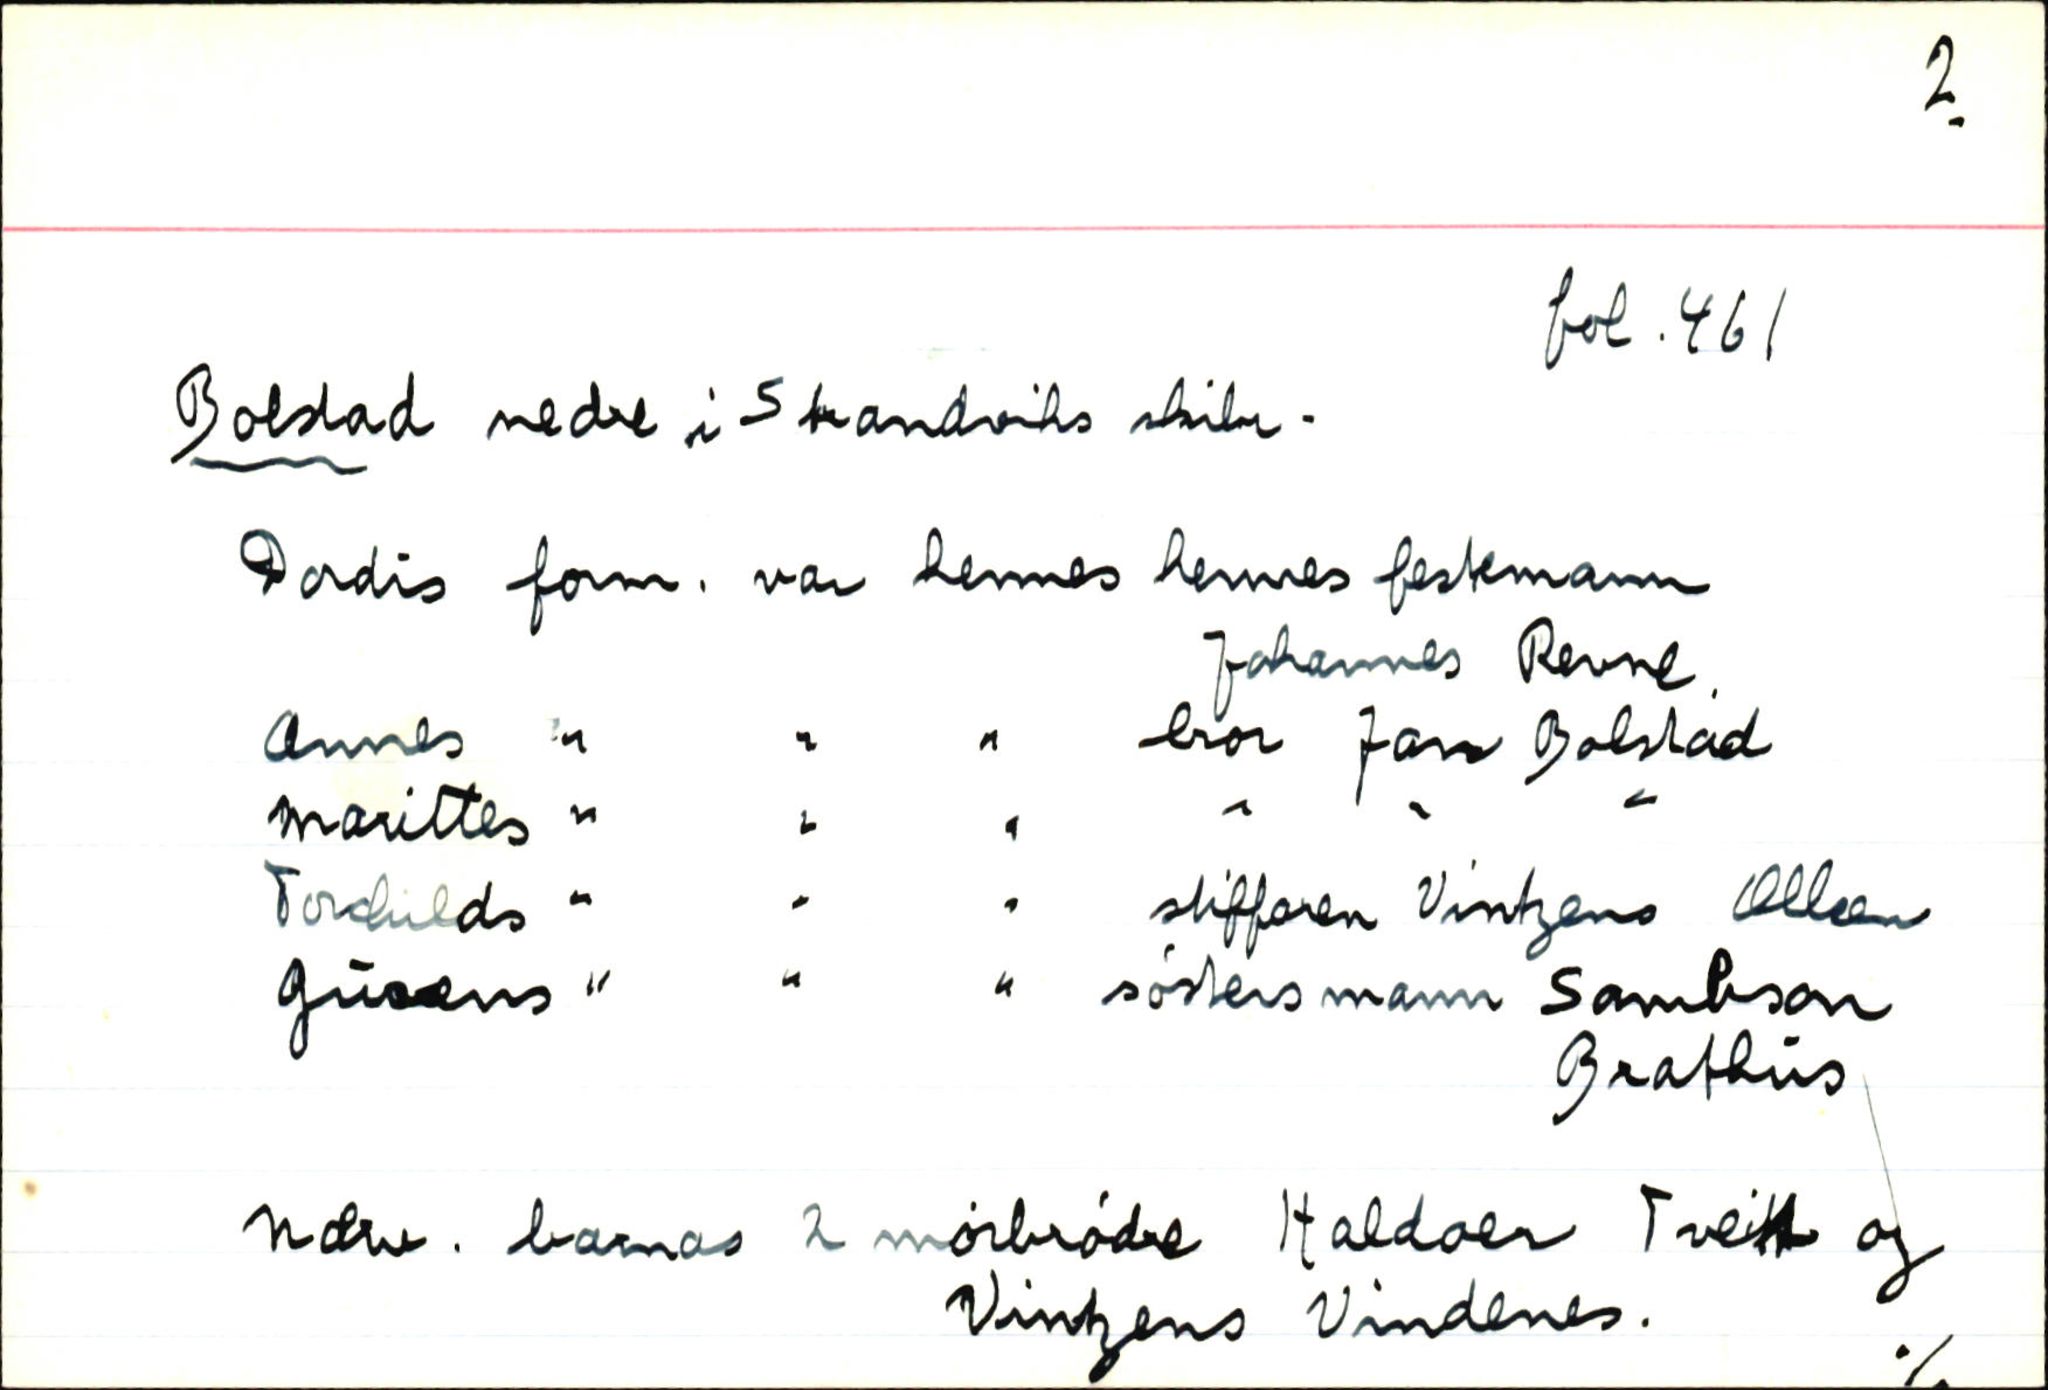 2
fol. 461
Bolstad nedre i Strandviks skibr.
Dordis form. var hennes hennes festemann
Johannes Revne.
Annes " " " bror Jan Bolstad
Marittes " " " " " "
Torchilds " " " stiffaren Vintzens Ollsen
" " " söstersmann Sambson
Brathus
Nærv. barnas 2 morbrødre Haldoer Tveit og
Vintzens Vindenes.
./.